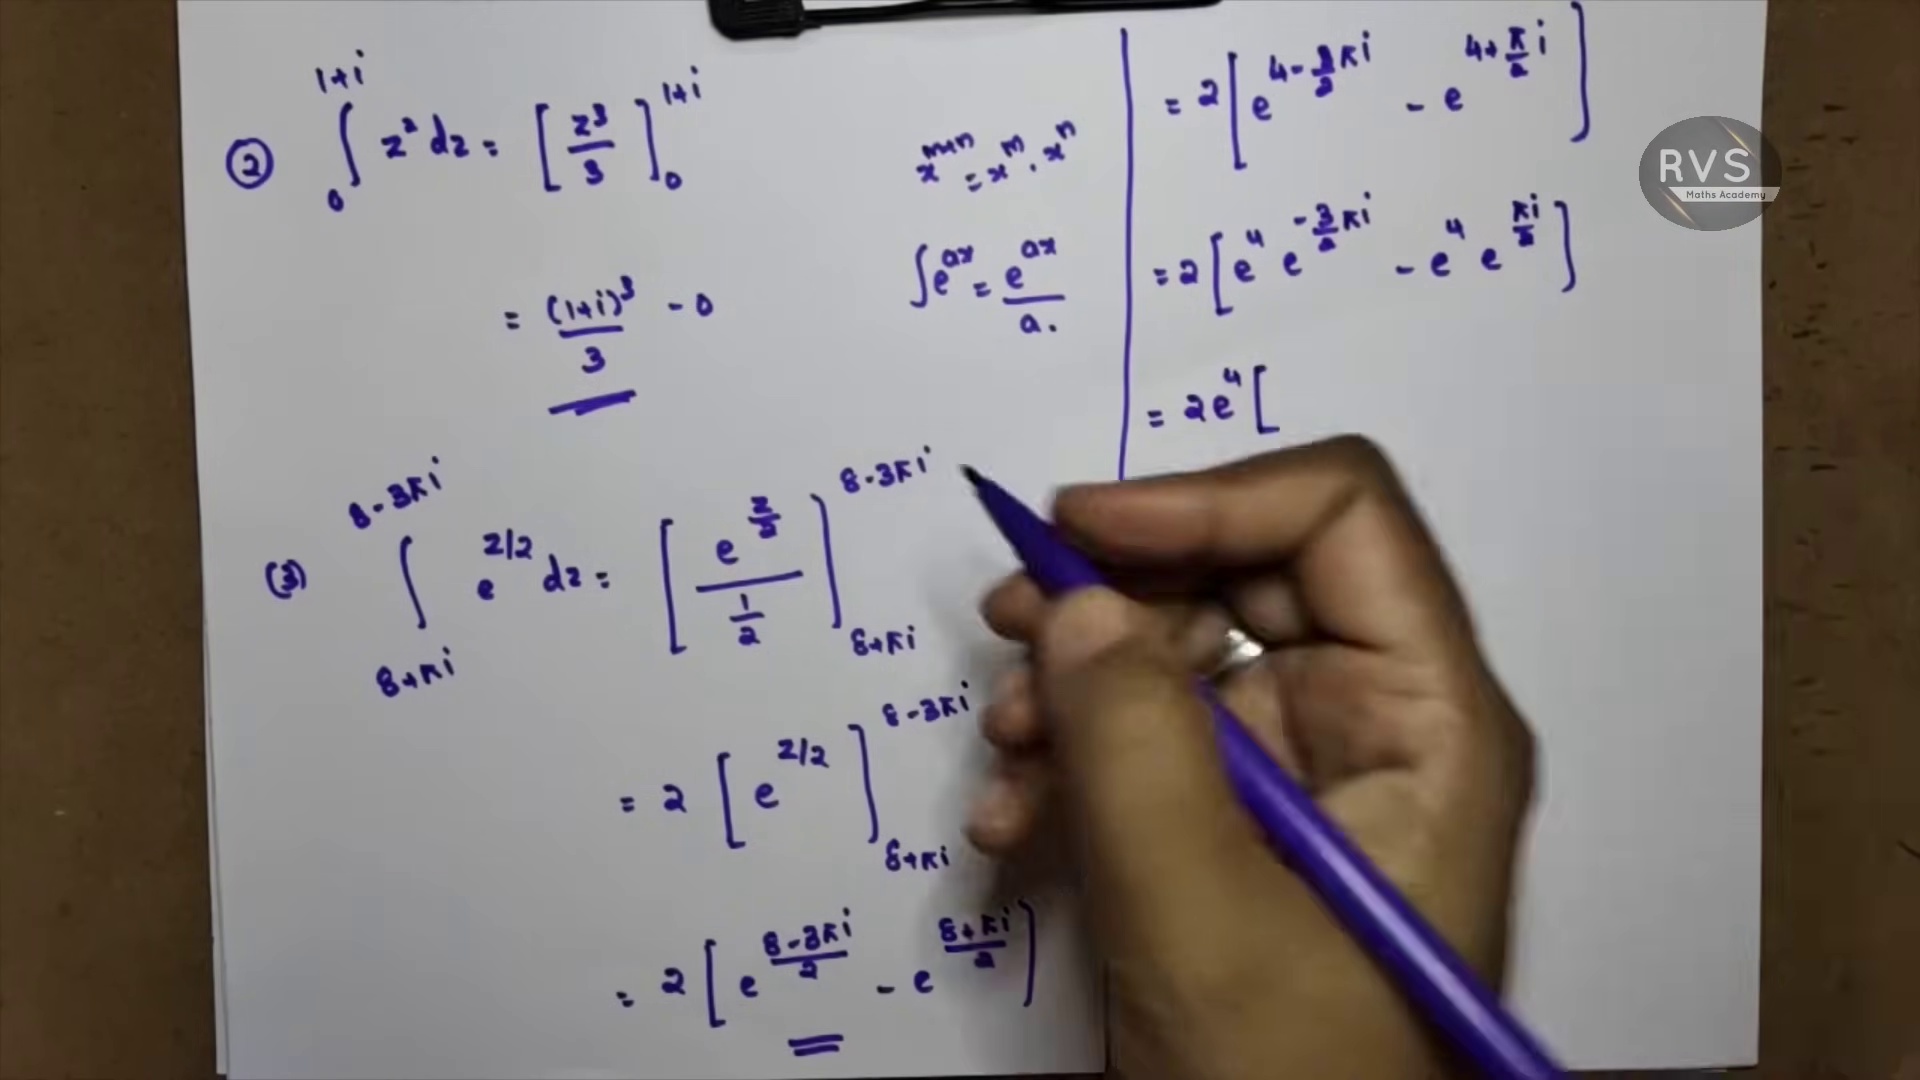 ② ∫₀¹⁺ⁱ z² dz = [z³/3]₀¹⁺ⁱ
= (1+i)³/3 - 0
x^{m+n} = x^m . x^n
∫e^{ax} = e^{ax}/a.
(3) ∫_{8+πi}^{8-3πi} e^{z/2} dz = [e^{z/2} / (1/2)]_{8+πi}^{8-3πi}
= 2 [e^{z/2}]_{8+πi}^{8-3πi}
= 2 [e^{(8-3πi)/2} - e^{(8+πi)/2}]
= 2 [e^{4-(3/2)πi} - e^{4+(π/2)i}]
= 2 [e⁴ e^{-(3/2)πi} - e⁴ e^{πi/2}]
= 2e⁴ [
RVS
Maths Academy